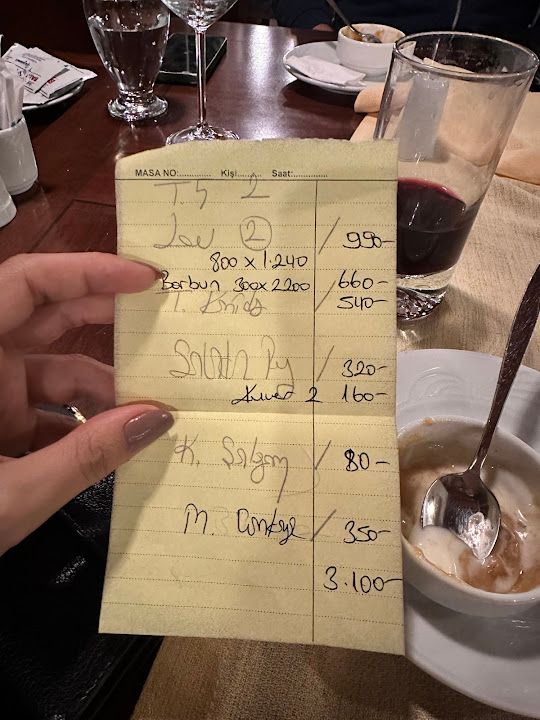 MASA NO:............ Kişi............ Saat:............
T.S 2
Lev 2 / 990-
800 x 1.240
Barbun 300x2200 660-
T. / 540-
Salata / 320-
Kuver 2 160-
K. Şalgam / 80-
M. / 350-
3.100-